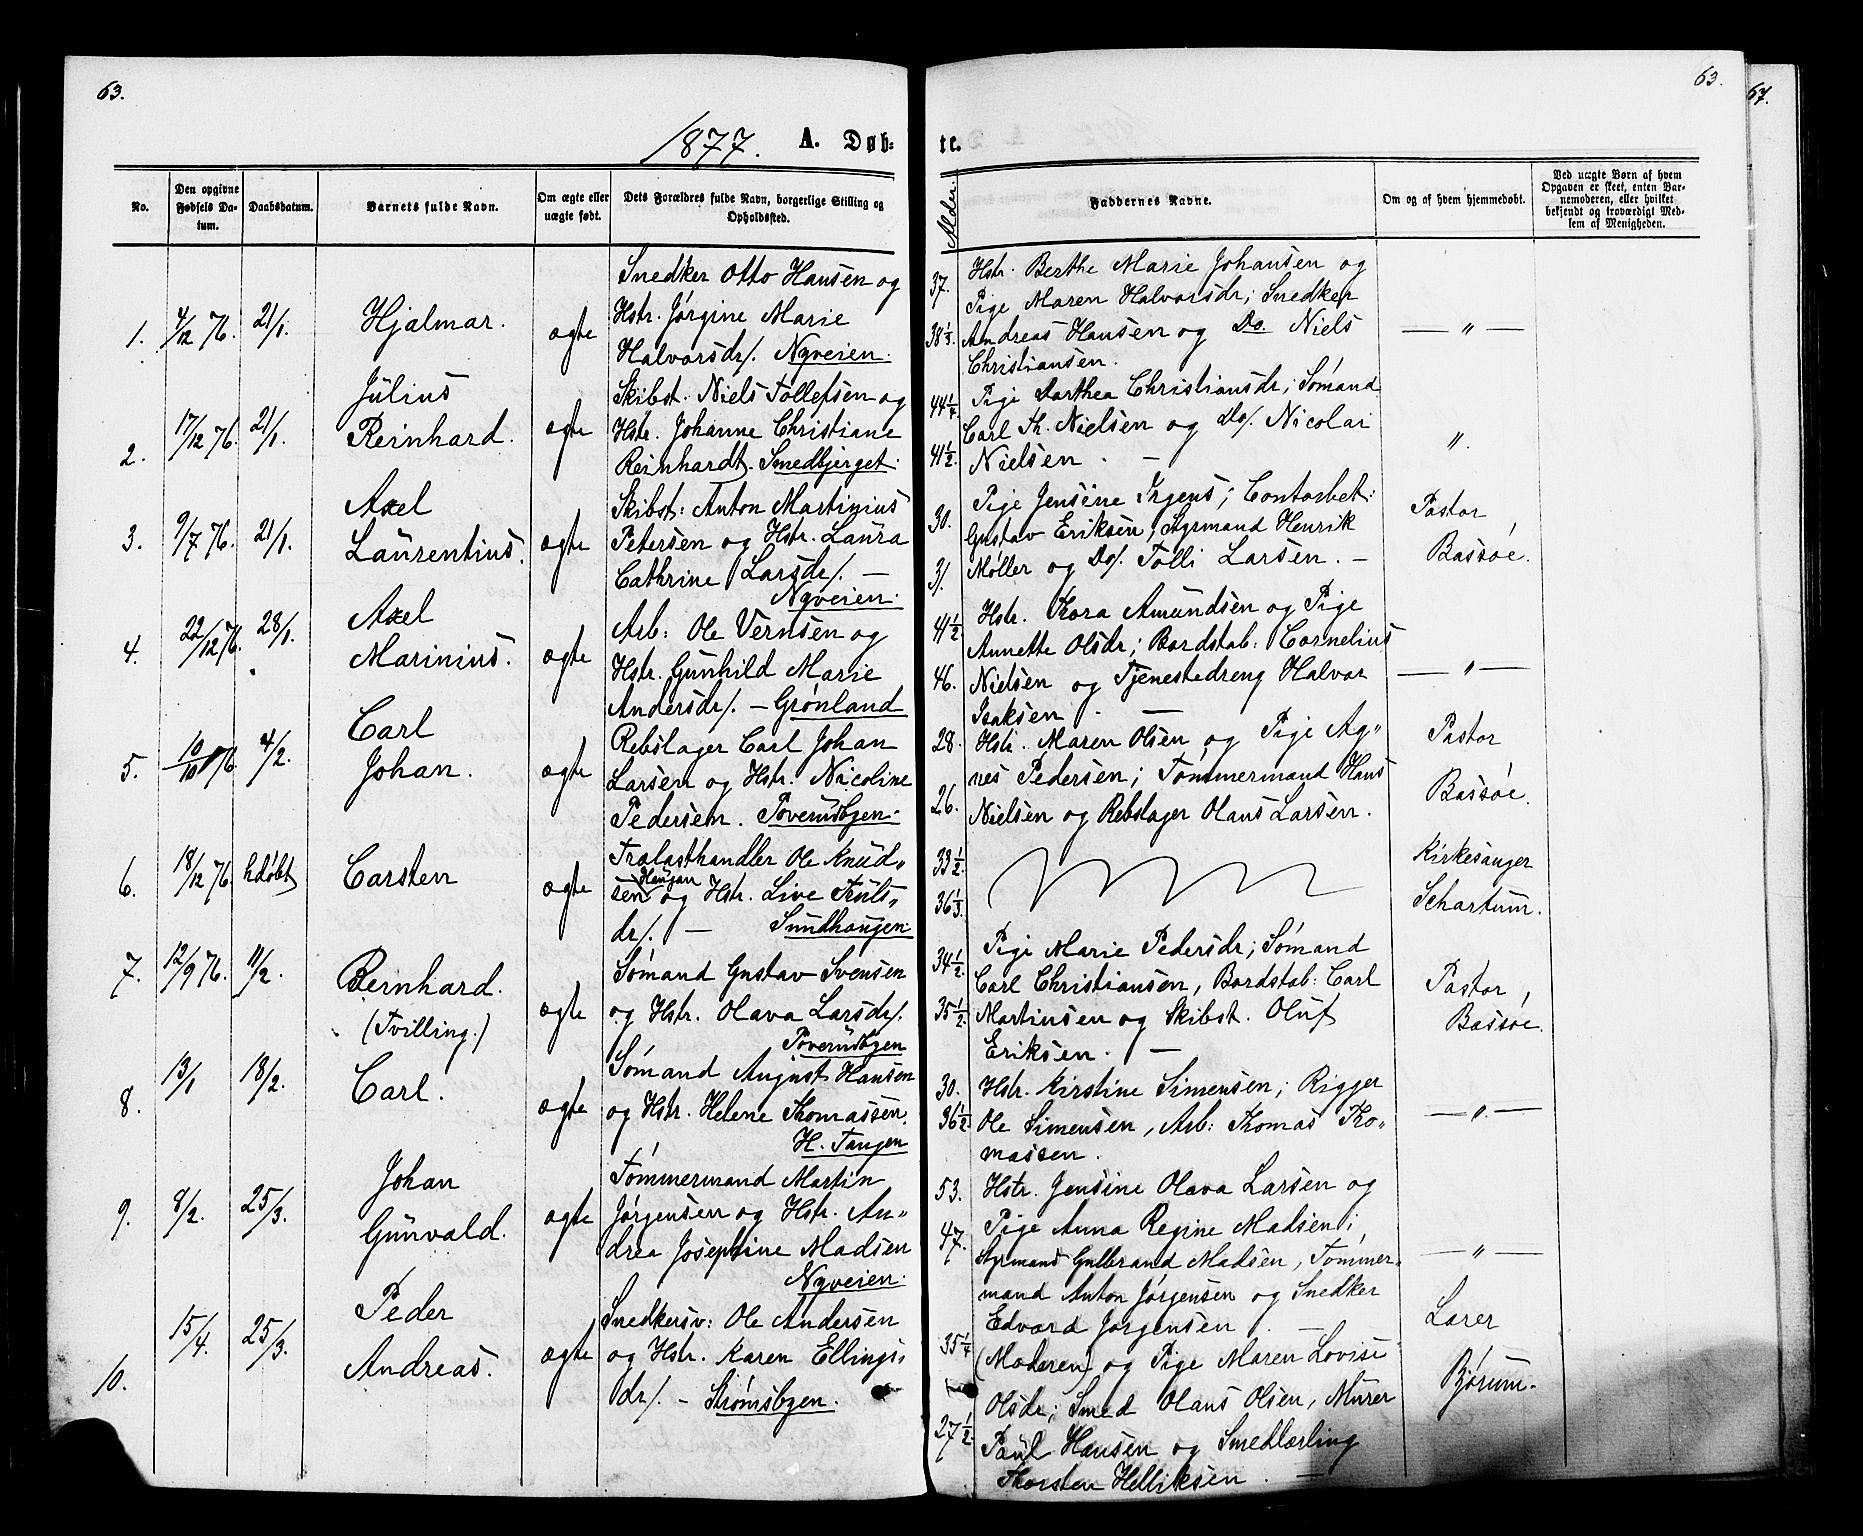 63.
63.
67.
1877. A. Døb-
te.
No.
Den opgivne Fødsels Da-tum.
Daabsdatum.
Barnets fulde Navn.
Om ægte eller uægte født.
Dets Forældres fulde Navn, borgerlige Stilling og Opholdsted.
Alder.
Faddernes Navne.
Om og af hvem hjemmedøbt.
Ved uægte Børn af hvem Opgaven er skeet, enten Bar-nemoderen, eller hvilket bekjendt og troværdigt Med-lem af Menigheden.
1. 4/12 76. 21/1. Hjalmar. ægte
Snedker Otto Hansen og
Hstr. Jørgine Marie
Halvorsdr/. Nyveien.
37.
38 1/3.
Hstr. Berthe Marie Johansen og
Pige Maren Halvorsdr; Snedker
Andreas Hansen og Do. Niels
Christiansen.
— " —
2. 17/12 76. 21/1. Julius
Reinhard. ægte
Skibst. Niels Tollefsen og
Hstr. Johanne Christiane
Reinhardt. Smedbjerget.
44 1/4
41 1/2.
Pige Dorthea Christiansdr; Sømand
Carl Th. Nielsen og Do/. Nicolai
Nielsen. —
".
3. 9/7 76. 21/1. Axel
Laurentius. ægte
Skibst: Anton Martinius
Petersen og Hstr. Laura
Cathrine Larsdr/. —
Nyveien.
30.
31.
Pige Jensine Irgens; Contorbet:
Gustav Eriksen, Styrmand Henrik
Møller og Do/. Tolli Larsen. —
Pastor
Bassøe.
4. 22/12 76. 28/1. Axel
Marinius. ægte
Arb: Ole Vernsen og
Hstr. Gunhild Marie
Andersdr/. — Grønland
41 1/2
46.
Hstr. Thora Amundsen og Pige
Annette Olsdr; Bordstab: Cornelius
Nielsen og Tjenestedreng Halvor
Isaksen. —
— " —
5. 10/10 76. 4/2. Carl
Johan. ægte
Rebslager Carl Johan
Larsen og Hstr. Nicoline
Pedersen. Poverudbyen.
28.
26.
Hstr. Maren Olsen og Pige Ag"
nes Pedersen; Tømmermand Hans
Nielsen og Rebslager Olaus Larsen.
Pastor
Bassøe.
6. 18/12 76. hdøbt Carsten ægte
Trælasthandler Ole Knud"
sen Haugan og Hstr. Live Truls"
dr/. — Sundhaugen
33 1/2
36 1/3.
Kirkesanger
Schartum.
7. 12/9 76. 11/2. Bernhard.
(Tvilling.) ægte
Sømand Gustav Svensen
og Hstr. Olava Larsdr/.
Poverudbyen
34 1/2
35 1/2.
Pige Marie Pedersdr; Sømand
Carl Christiansen, Bordstab: Carl
Martinsen og Skibst. Oluf
Eriksen. —
Pastor
Bassøe.
8. 13/1 18/2. Carl. ægte
Sømand August Hansen
og Hstr. Helene Thomassen.
H. Tangen
30.
36 1/2
Hstr. Kirstine Simensen; Rigger
Ole Simensen, Arb: Thomas Tho"
massen.
— " —
9. 8/2. 25/3. Johan
Gunvald. ægte
Tømmermand Martin
Jørgensen og Hstr. An"
drea Josephine Madsen
Nyveien.
53.
47.
Hstr. Jensine Olava Larsen og
Pige Anna Regine Madsen;
Styrmand Gulbrand Madsen, Tømmer"
mand Anton Jørgensen og Snedker
Edvard Jørgensen. —
— " —
10. 15/4. 25/3. Peder
Andreas. ægte
Snedkersv: Ole Andersen
og Hstr. Karen Ellings"
dr/. — Strømsbyen.
35 1/4
27 1/2
(Moderen) og Pige Maren Lovise
Olsdr; Smed Olaus Olsen, Murer
Paul Hansen og Smedlærling
Thorsten Helliksen. —
Lærer
Bjørum.